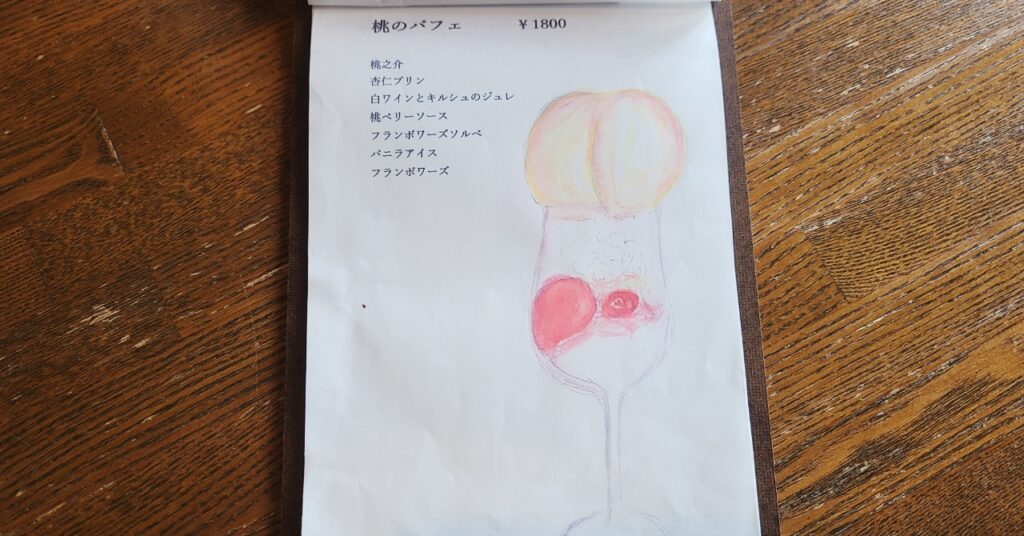 桃のパフェ ￥1800
桃之介
杏仁プリン
白ワインとキルシュのジュレ
桃ベリーソース
フランボワーズソルベ
バニラアイス
フランボワーズ